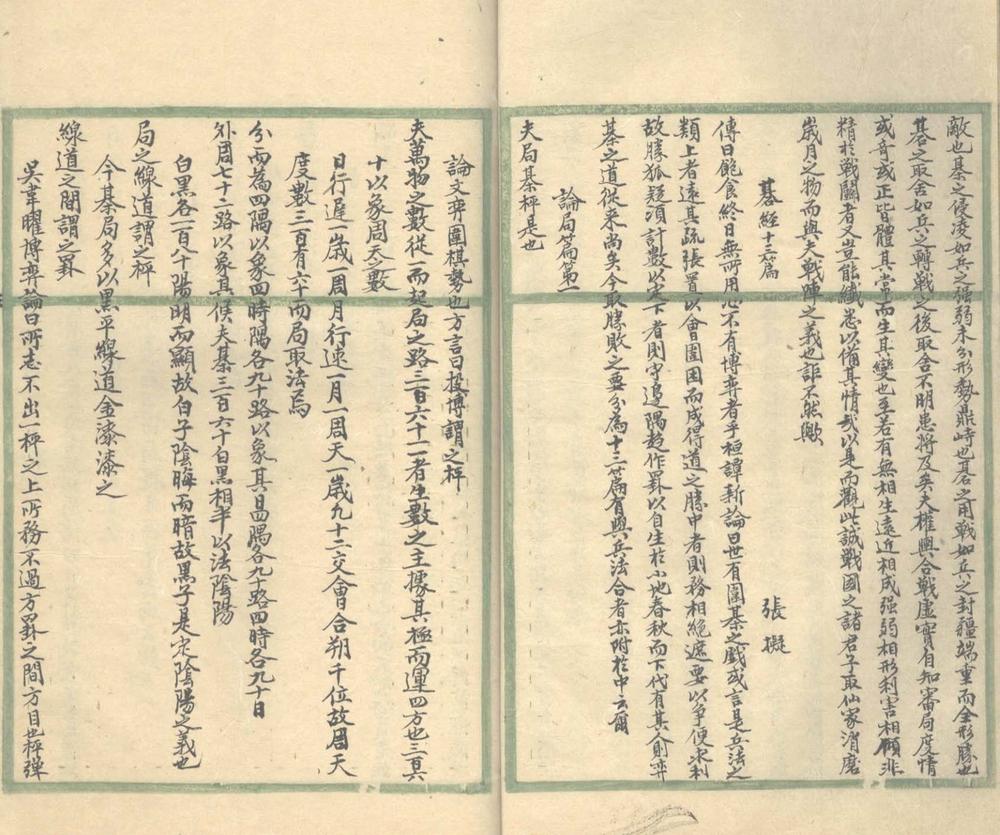 敵也棊之侵凌如兵之强弱未分形勢鼎峙也碁之用戰如兵之封疆端重而全形勝也
碁之取舍如兵之轉戰之後取舍不明患將及矣夫權輿合戰虛實自知審局度情
或奇或正皆體其常而生其變也至若有無相生遠近相成强弱相形利害相顧非
精於戰鬭者又豈能纖悉以備其情哉以是而觀此誠戰國之諸君子取仙家消磨
歲月之物而與夫戰陣之義也詎不然歟
棊經十三篇
張擬
傳曰飽食終日無所用心不有博弈者乎桓譚新論曰世有圍棊之戲或言是兵法之
類上者遠其疏張置以會圍因而成得道之勝中者則務相絶遮要以爭便求利
故勝狐疑須計數以定下者則守邊隅趍作罫以自生於小地春秋而下代有其人則弈
棊之道從来尚矣今取勝敗之要分為十三篇有與兵法合者亦附於中云爾
論局篇第一
夫局棊枰是也
論文弈圍棋勢也方言曰投博謂之枰
夫萬物之數從一而起局之路三百六十一者生數之主據其極而運四方也三百六
十以象周天之數
日行遲一歲一周月行速一月一周天一歲九十二交會合朔千位故周天
度數三百有六十而局取法焉
分而為四隅以象四時隅各九十路以象其日四隅各九十路四時各九十日
外周七十二路以象其候夫棊三百六十白黑相半以法陰陽
白黑各一百八十陽明而顯故白子陰晦而暗故黑子是定陰陽之義也
局之線道謂之枰
今棊局多以黑平線道金漆漆之
線道之間謂之罫
吳韋曜博弈論曰所志不出一枰之上所務不過方罫之間方目也枰彈